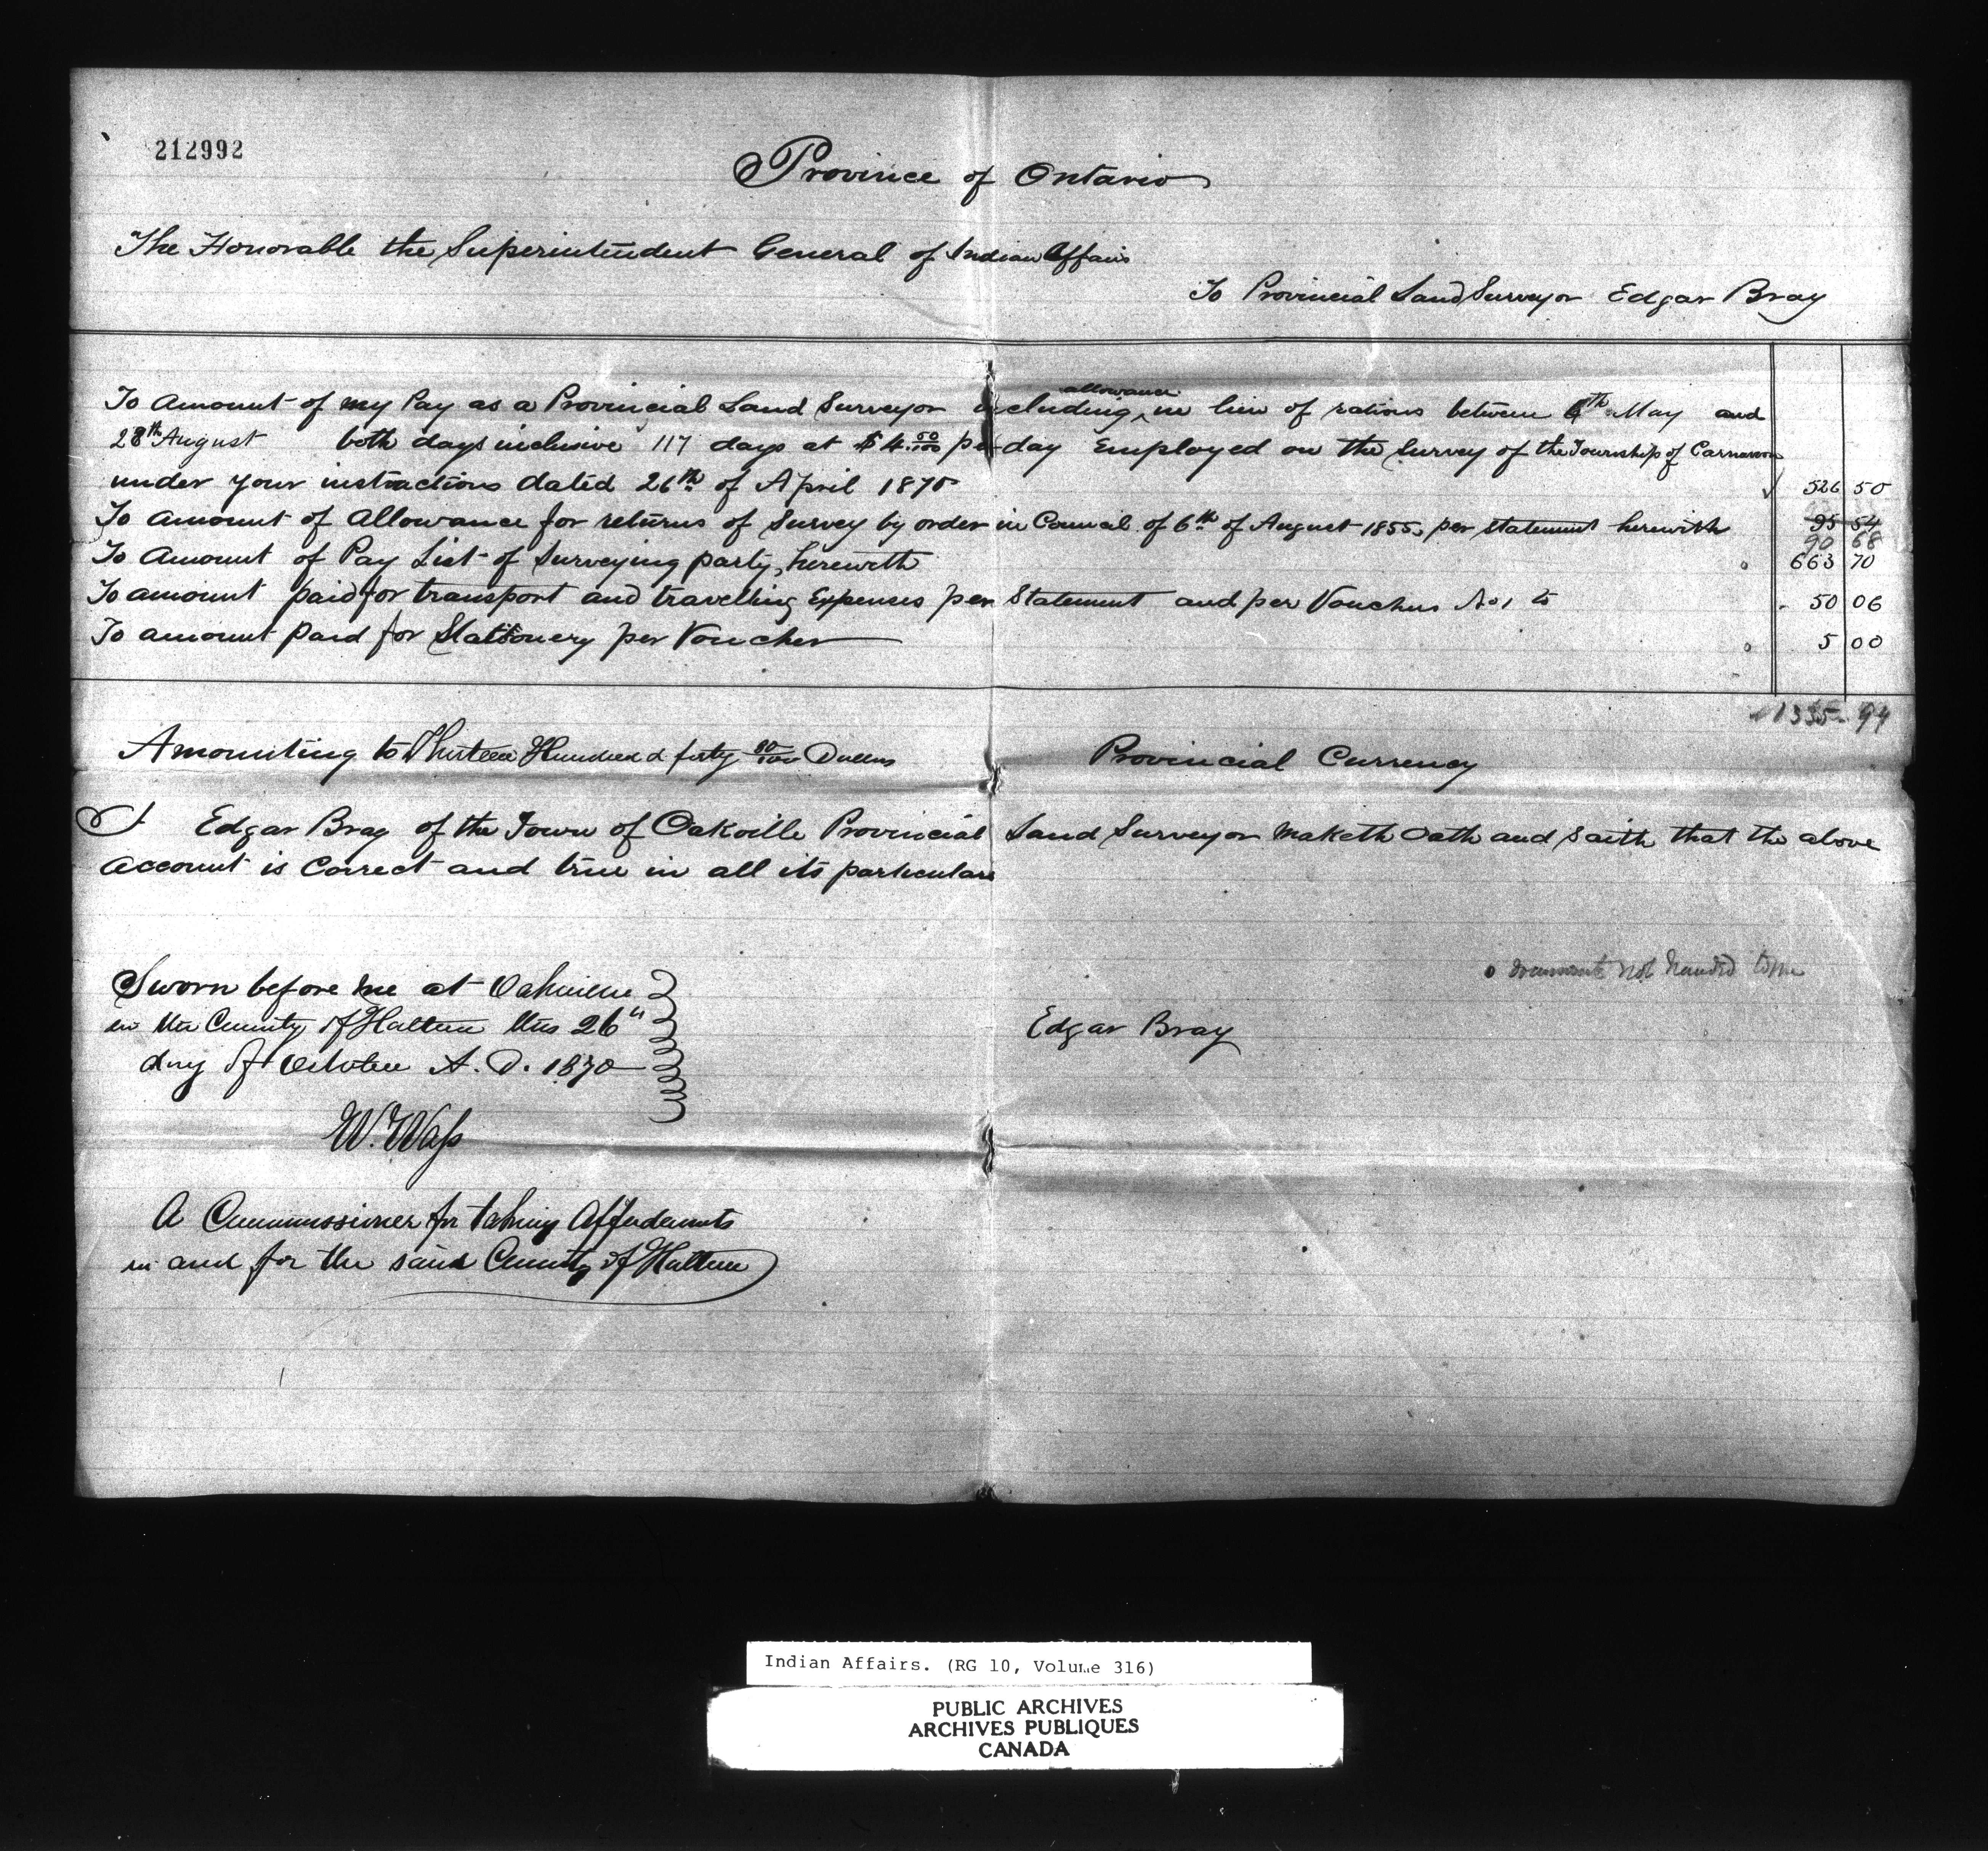 212992
Province of Ontario
The Honorable the Superintendent General of Indian Affairs
To Provincial Land Surveyor Edgar Bray
To Amount of my Pay as a Provincial Land Surveyor including allowance in lieu of rations between 4th May and
28th August both days inclusive 117 days at $4 50/100 per day Employed on the Survey of the Township of Carnarvon
under your instructions dated 26th of April 1870 526 50
To Amount of Allowance for returns of Survey by order in Council of 6th of August 1855 per statement herewith 95 54
90 68
To Amount of Pay List of Surveying party, herewith 663 70
To amount paid for transport and travelling Expenses per Statement and per Vouchers No 1 to 50 06
To amount Paid for Stationery per Voucher 5 00
1335.94
Amounting to Thirteen Hundred & forty 80/100 Dollars Provincial Currency
I Edgar Bray of the Town of Oakville Provincial Land Surveyor Maketh Oath and Saith that the above
Account is Correct and true in all its particulars
Sworn before me at Oakville
in the County of Halton this 26th
day of October A. D. 1870
not handed to me
Edgar Bray
W. Wass
A Commissioner for taking Affidavits
in and for the said County of Halton
Indian Affairs. (RG 10, Volume 316)
PUBLIC ARCHIVES
ARCHIVES PUBLIQUES
CANADA